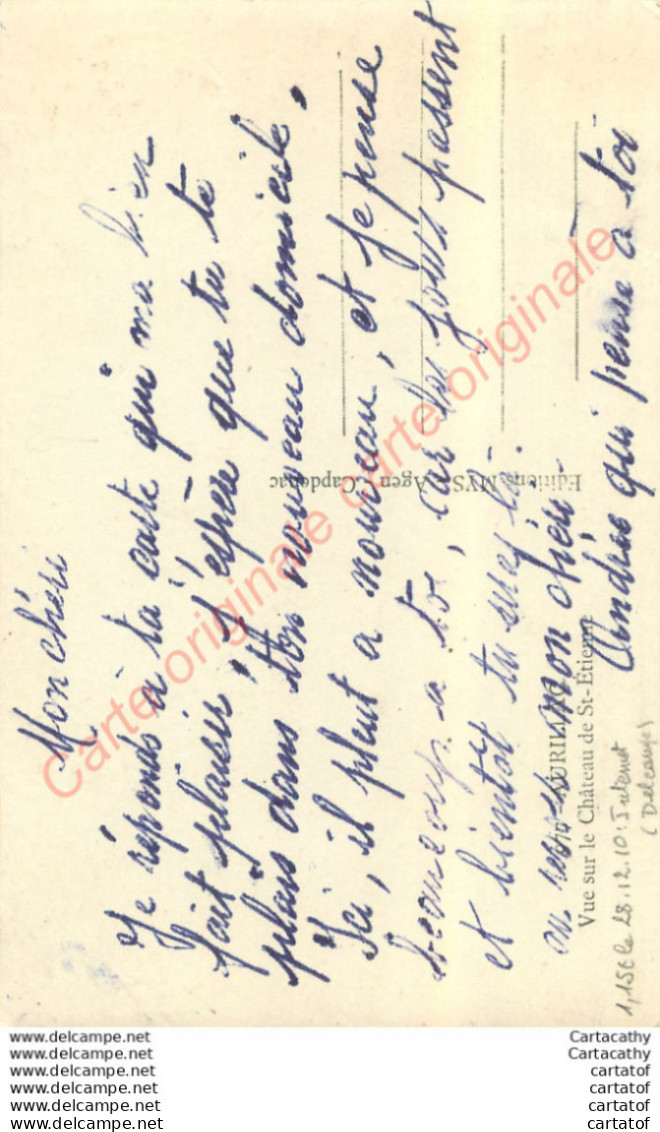 Mon chéri
Je réponds à ta carte qui ma bien
fait plaisir, J'espère que tu te
plais dans ton nouveau domicile,
Ici, il pleut a nouveau, et je pense
beaucoup a toi, car les jours passent
et bientot tu seras là.
au revoir mon chéri
Andrée qui pense a toi
AURILLAC
Vue sur le Château de St-Etienne
Editions MYS, Agen - Capdenac
1,15€ le 28.12.10 : Internet
(Delcampe)
Carte originale carte originale
www.delcampe.net
www.delcampe.net
www.delcampe.net
www.delcampe.net
www.delcampe.net
www.delcampe.net
Cartacathy
Cartacathy
cartatof
cartatof
cartatof
cartatof